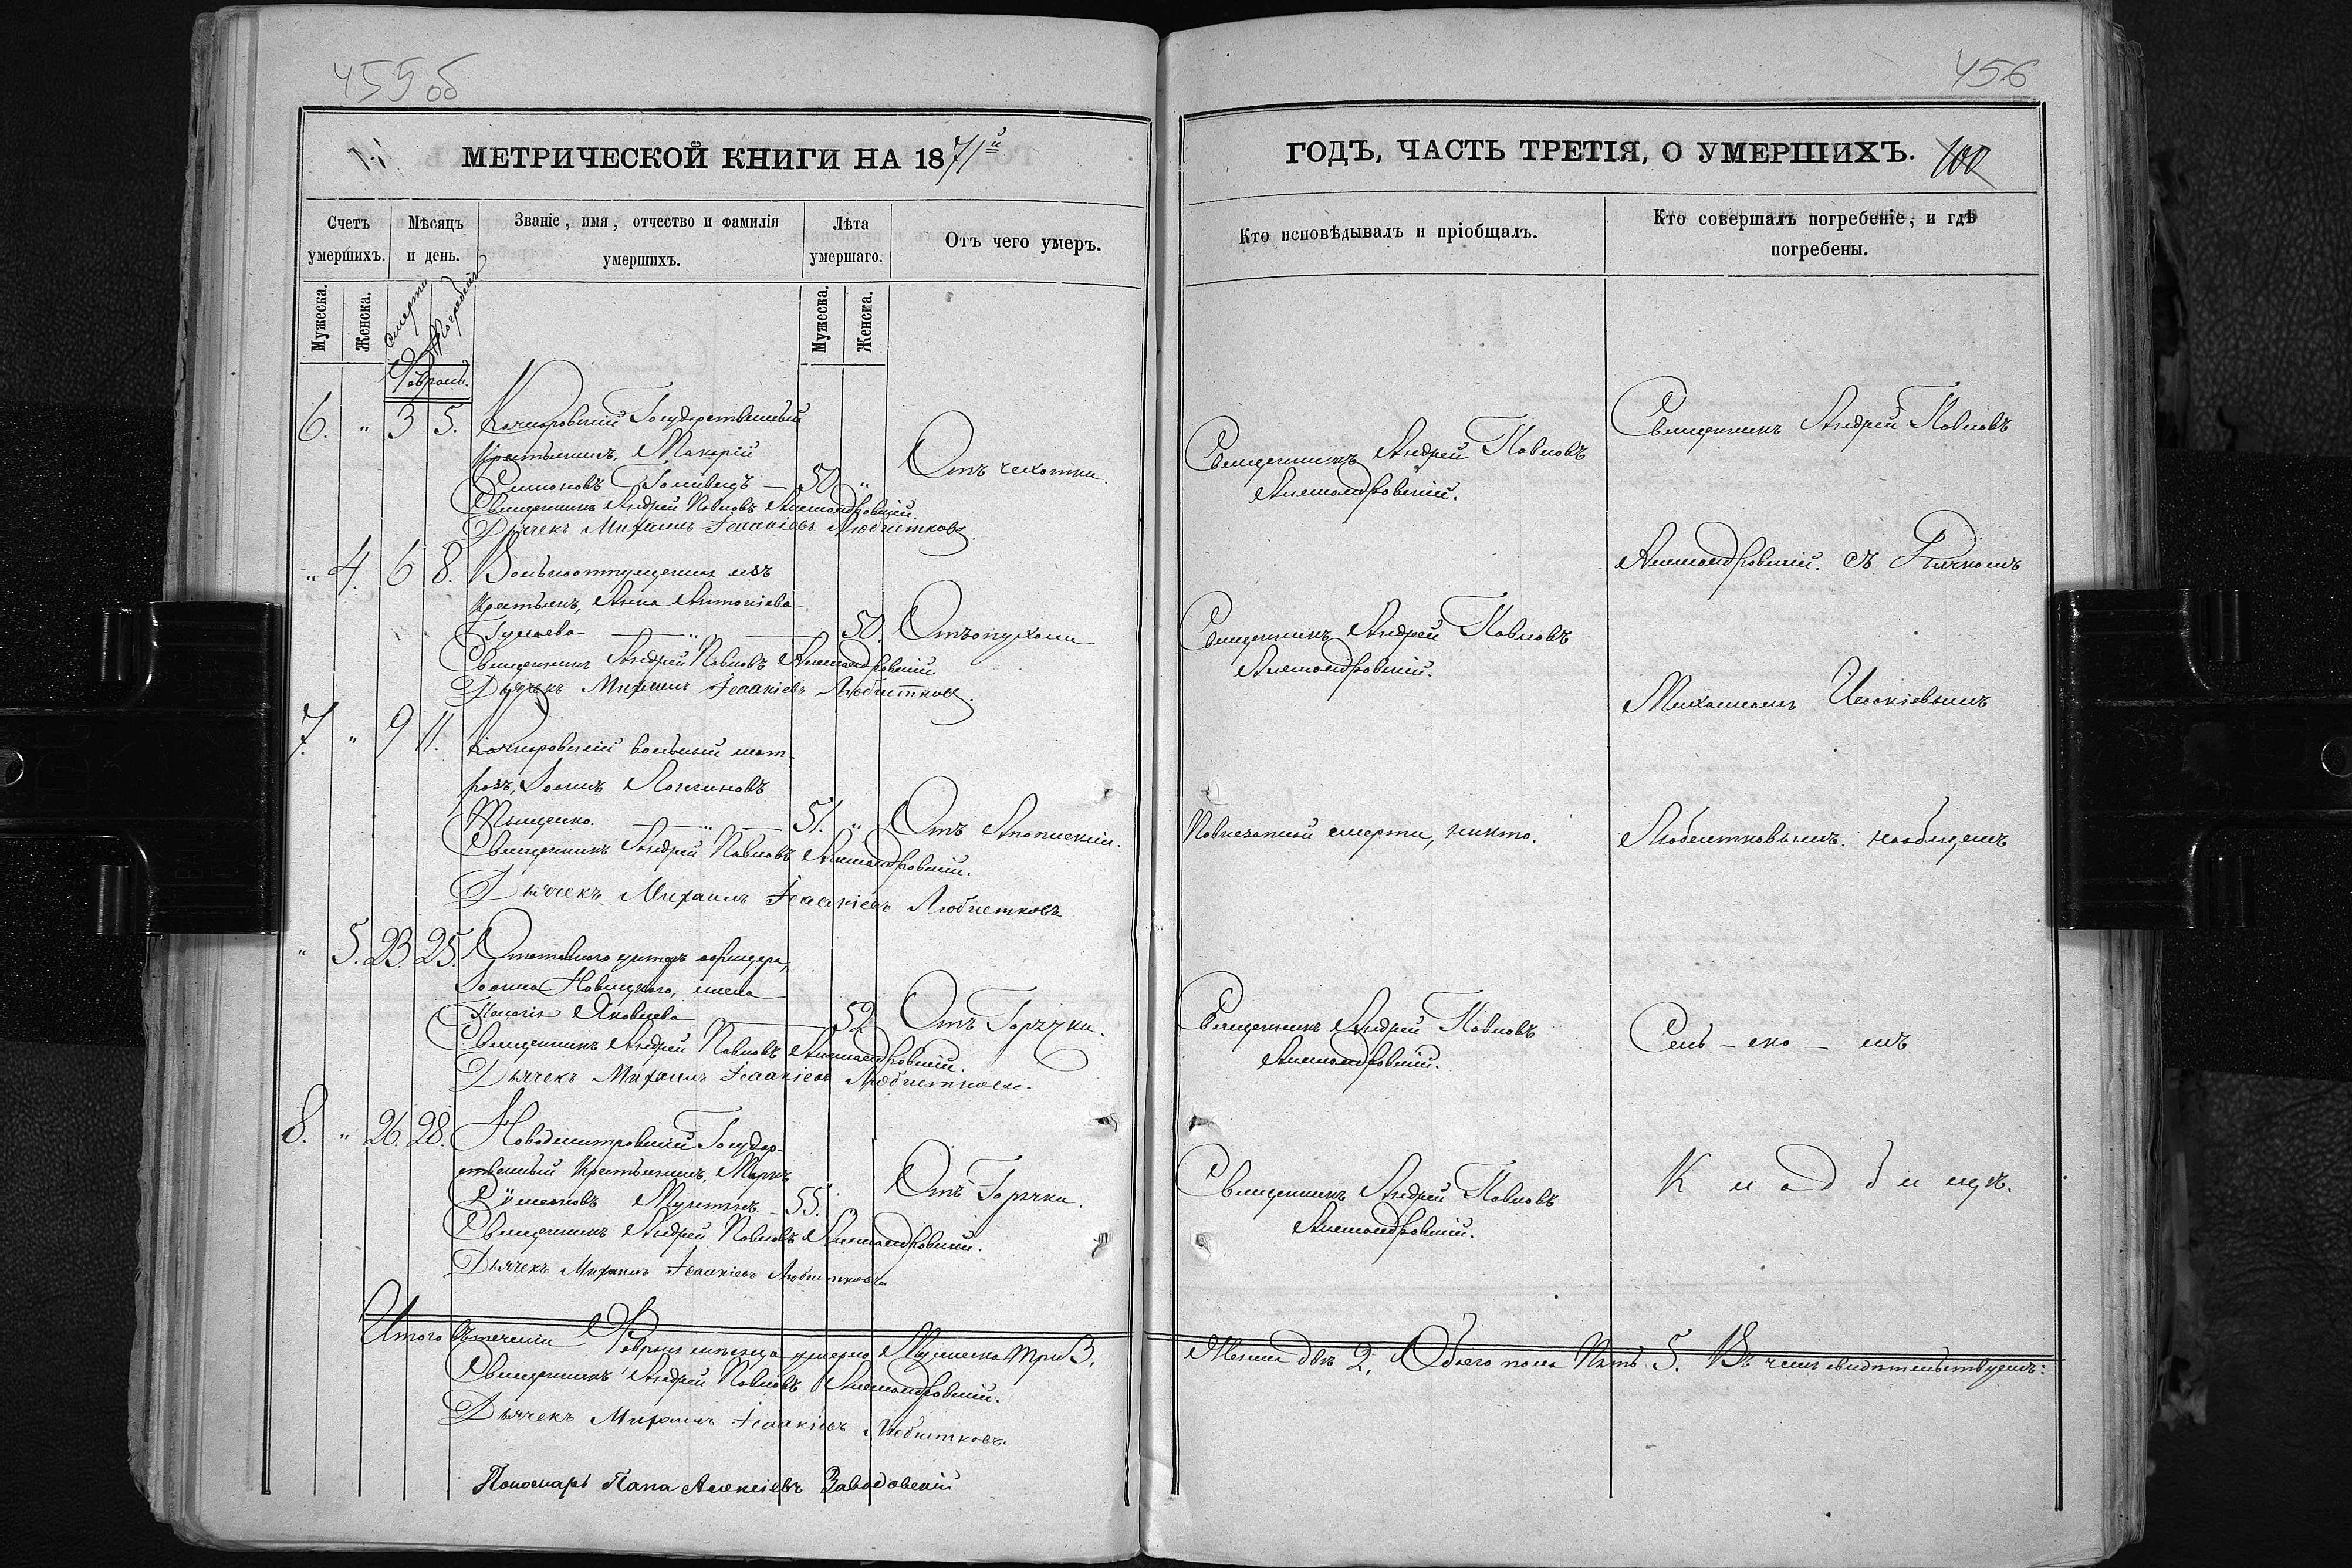 455 об
МЕТРИЧЕСКОЙ КНИГИ НА 1871й
Счетъ умершихъ.
Мѣсяцъ и день.
Званіе, имя, отчество и фамилія умершихъ.
Лѣта умершаго.
Отъ чего умеръ.
Мужеска.
Женска.
смерти
Погребенія
Мужеска.
Женска.
Февраль.
6. " 3 5. Качкаровскій Государственный
Крестьянинъ, Макарій
Симоновъ — 50 " Отъ чехотки.
Священникъ Андрей Павловъ Александровскій.
Дьячекъ Михаилъ Ісаакіевъ Любистковъ.
" 4. 6 8. Вольноотпущенная изъ
Крестьянъ, Анна Антоніева
— " — 50. Отъ опухоли
Священникъ Андрей Павловъ Александровскій
Дьячекъ Михаилъ Ісаакіевъ Любистковъ.
7. " 9 11. Качкаровскій вольный мат-
розъ, Іоаннъ Лонгиновъ
Тищенко. — " — 51. " Отъ Апоплекіи.
Священникъ Андрей Павловъ Александровскій.
Дьячекъ Михаилъ Ісаакіевъ Любистковъ
" 5. 23. 25. Отставнаго унтеръ офицера,
Іоанна Новицкаго, жена
Яковлева — 52 Отъ Горячки.
Священникъ Андрей Павловъ Александровскій.
Дьячекъ Михаилъ Ісаакіевъ Любистковъ.
8. " 26. 28. Новодмитровскій Государ-
ственный Крестьянинъ, Маркъ
Сѵмеоновъ — 55. " Отъ Горячки.
Священникъ Андрей Павловъ Александровскій.
Дьячекъ Михаилъ Ісаакіевъ Любистковъ
Итого втеченіи Февраля мѣсяца умерло Мужеска три 3,
Священникъ Андрей Павловъ Александровскій.
Дьячекъ Михаилъ Ісаакіевъ Любистковъ.
Пономарь Алексіевъ Заводовскій
456
ГОДЪ, ЧАСТЬ ТРЕТІЯ, О УМЕРШИХЪ. 100
Кто исповѣдывалъ и пріобщалъ.
Кто совершалъ погребеніе, и гдѣ погребены.
Священникъ Андрей Павловъ
Александровскій.
Священникъ Андрей Павловъ
Александровскій.
Повнезапной смерти, никто.
Священникъ Андрей Павловъ
Александровскій.
Священникъ Андрей Павловъ
Александровскій.
Священникъ Андрей Павловъ
Александровскій. съ Дьячкомъ
Михаиломъ Исаакіевымъ
Любистковымъ. наобщемъ
Сель - ско - мъ
К л а д б и щѣ.
Женска двѣ 2, Обоего пола Пять 5. Въ чемъ свидѣтельствуемъ: